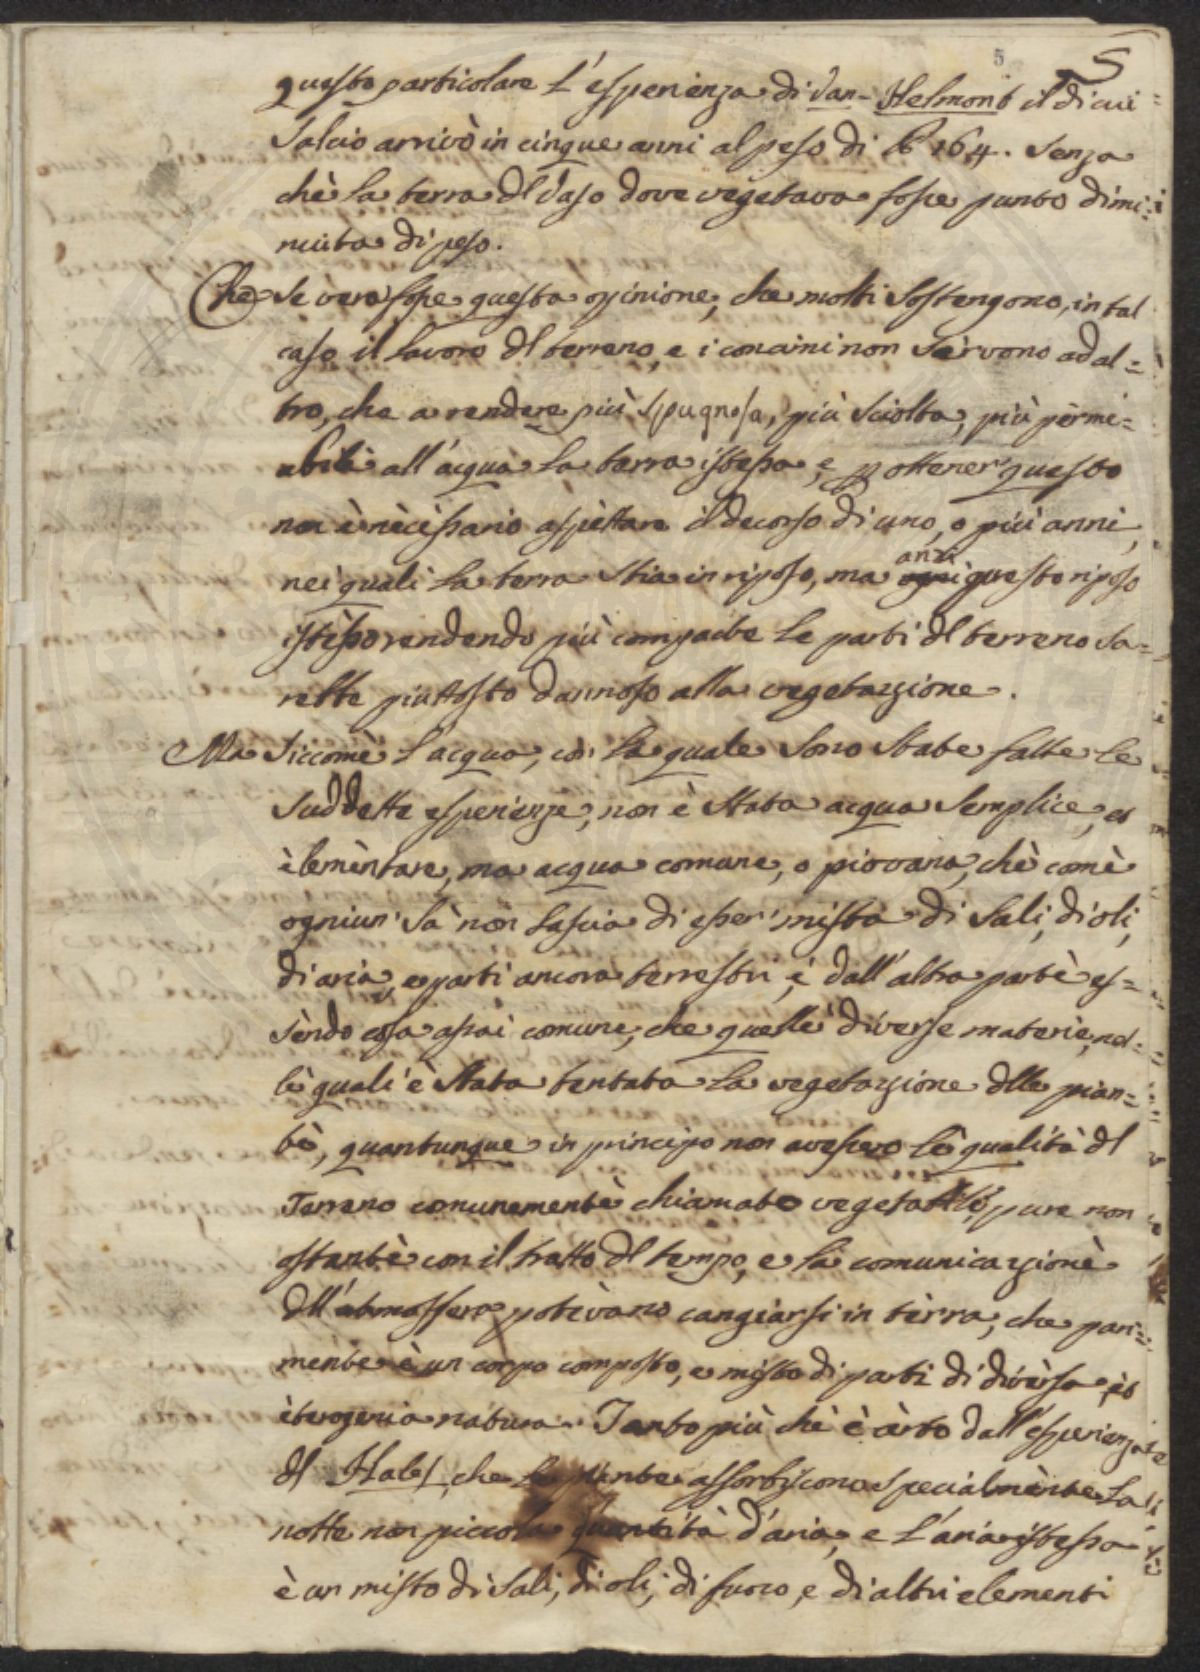 5 5
questo particolare l'esperienza di Van-Helmont il di cui
Salcio arrivò in cinque anni al peso di lb 164. Senza
chè la terra dl Vaso dove vegetava fosse punto dimi=
nuita di peso.
Che se vera fosse questa opinione, che molti sostengono, in tal
caso il lavoro dl terreno, e i concimi non servono ad al=
tro, che a rendere più spugnosa, più sciolta, più permè=
abile all'acqua la terra istessa, e p ottener questo
non è nècessario aspèttare il decorso di uno, o più anni,
nei quali la terra stia in riposo, ma anzi questo riposo
istèsso rendendo più compatte le parti dl terreno sa=
rebbe piuttosto dannoso alla vegetazione.
Ma siccomè l'acqua, con la quale sono state fatte le
suddette esperienze, non è stata acqua semplice, ed
èlemèntare, ma acqua comune, o piovana, chè comè
ogniun' sà non lascia di esser' mista di sali, di oli,
di aria, e parti ancora terrestri, e dall'altra partè es=
sèndo cosa assai comune, che quelle diverse materiè, nel=
lè quali è stata tentata la vegetazione dlle pian=
tè, quantunque in principo non avessero lè qualità dl
Terreno comunementè chiamato vegetabile, pure non
ostantè con il tratto dl tempo, e la comunicazionè
dll'atmosfera potèvano cangiarsi in tèrra, che pari=
mente è un corpo composto, e misto di parti di divèrsa, ed
èterogenia natura. Tanto più chè è cèrto dall'esperienza
dl Hales, che le piante assorbiscono specialmènte la
notte non piccola quantità d'aria, e l'aria istessa
è un misto di sali, di oli, di fuoco, e di altri elementi